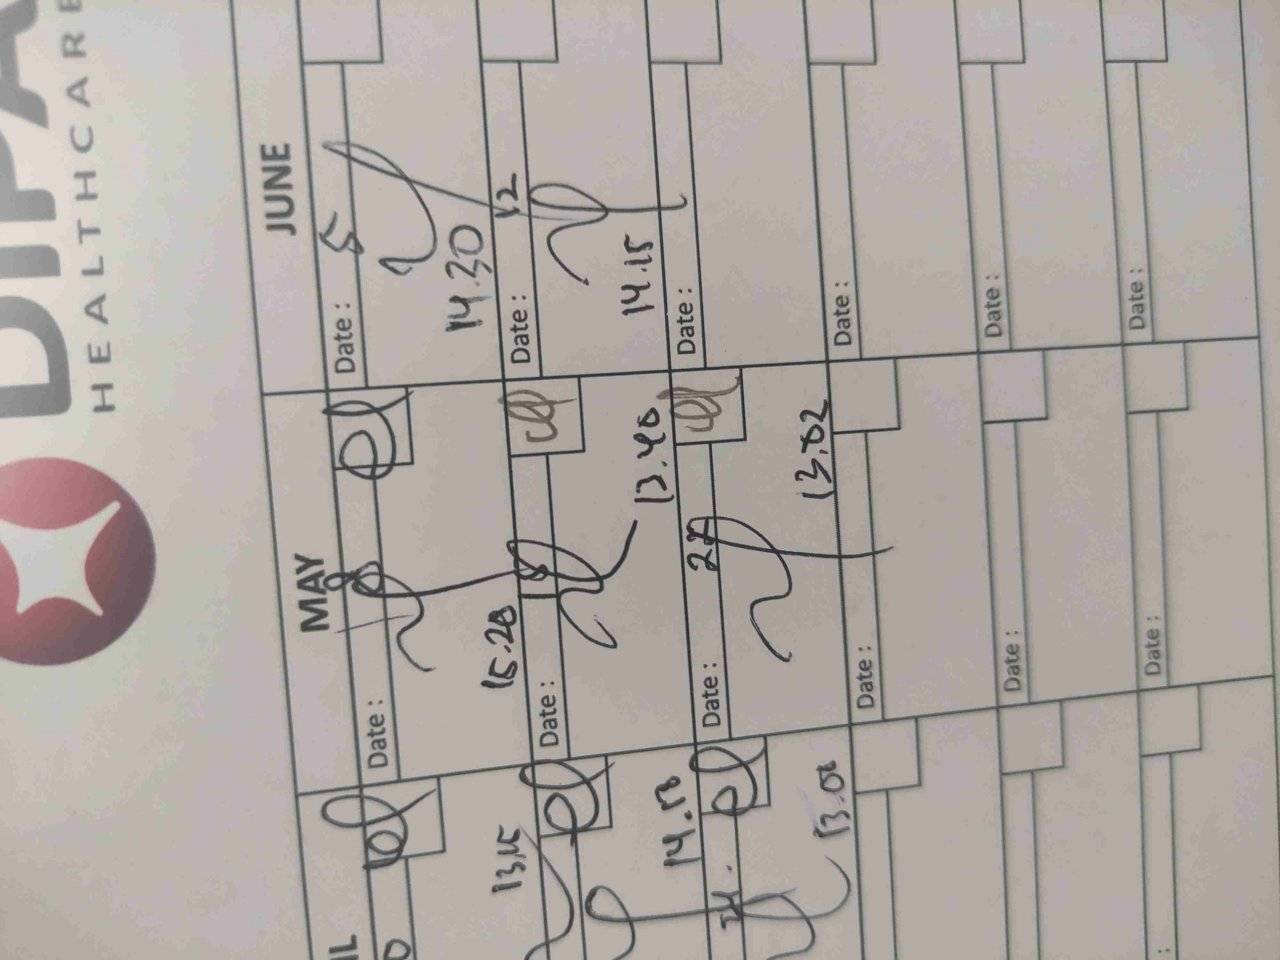 DIPA
HEALTHCARE
IL
13.15
14.10
24.
13.08
:
MAY
Date :
8
15.28
Date :
15
13.40
Date :
22
13.02
Date :
Date :
Date :
JUNE
Date : 5
14.30
Date : 12
14.15
Date :
Date :
Date :
Date :